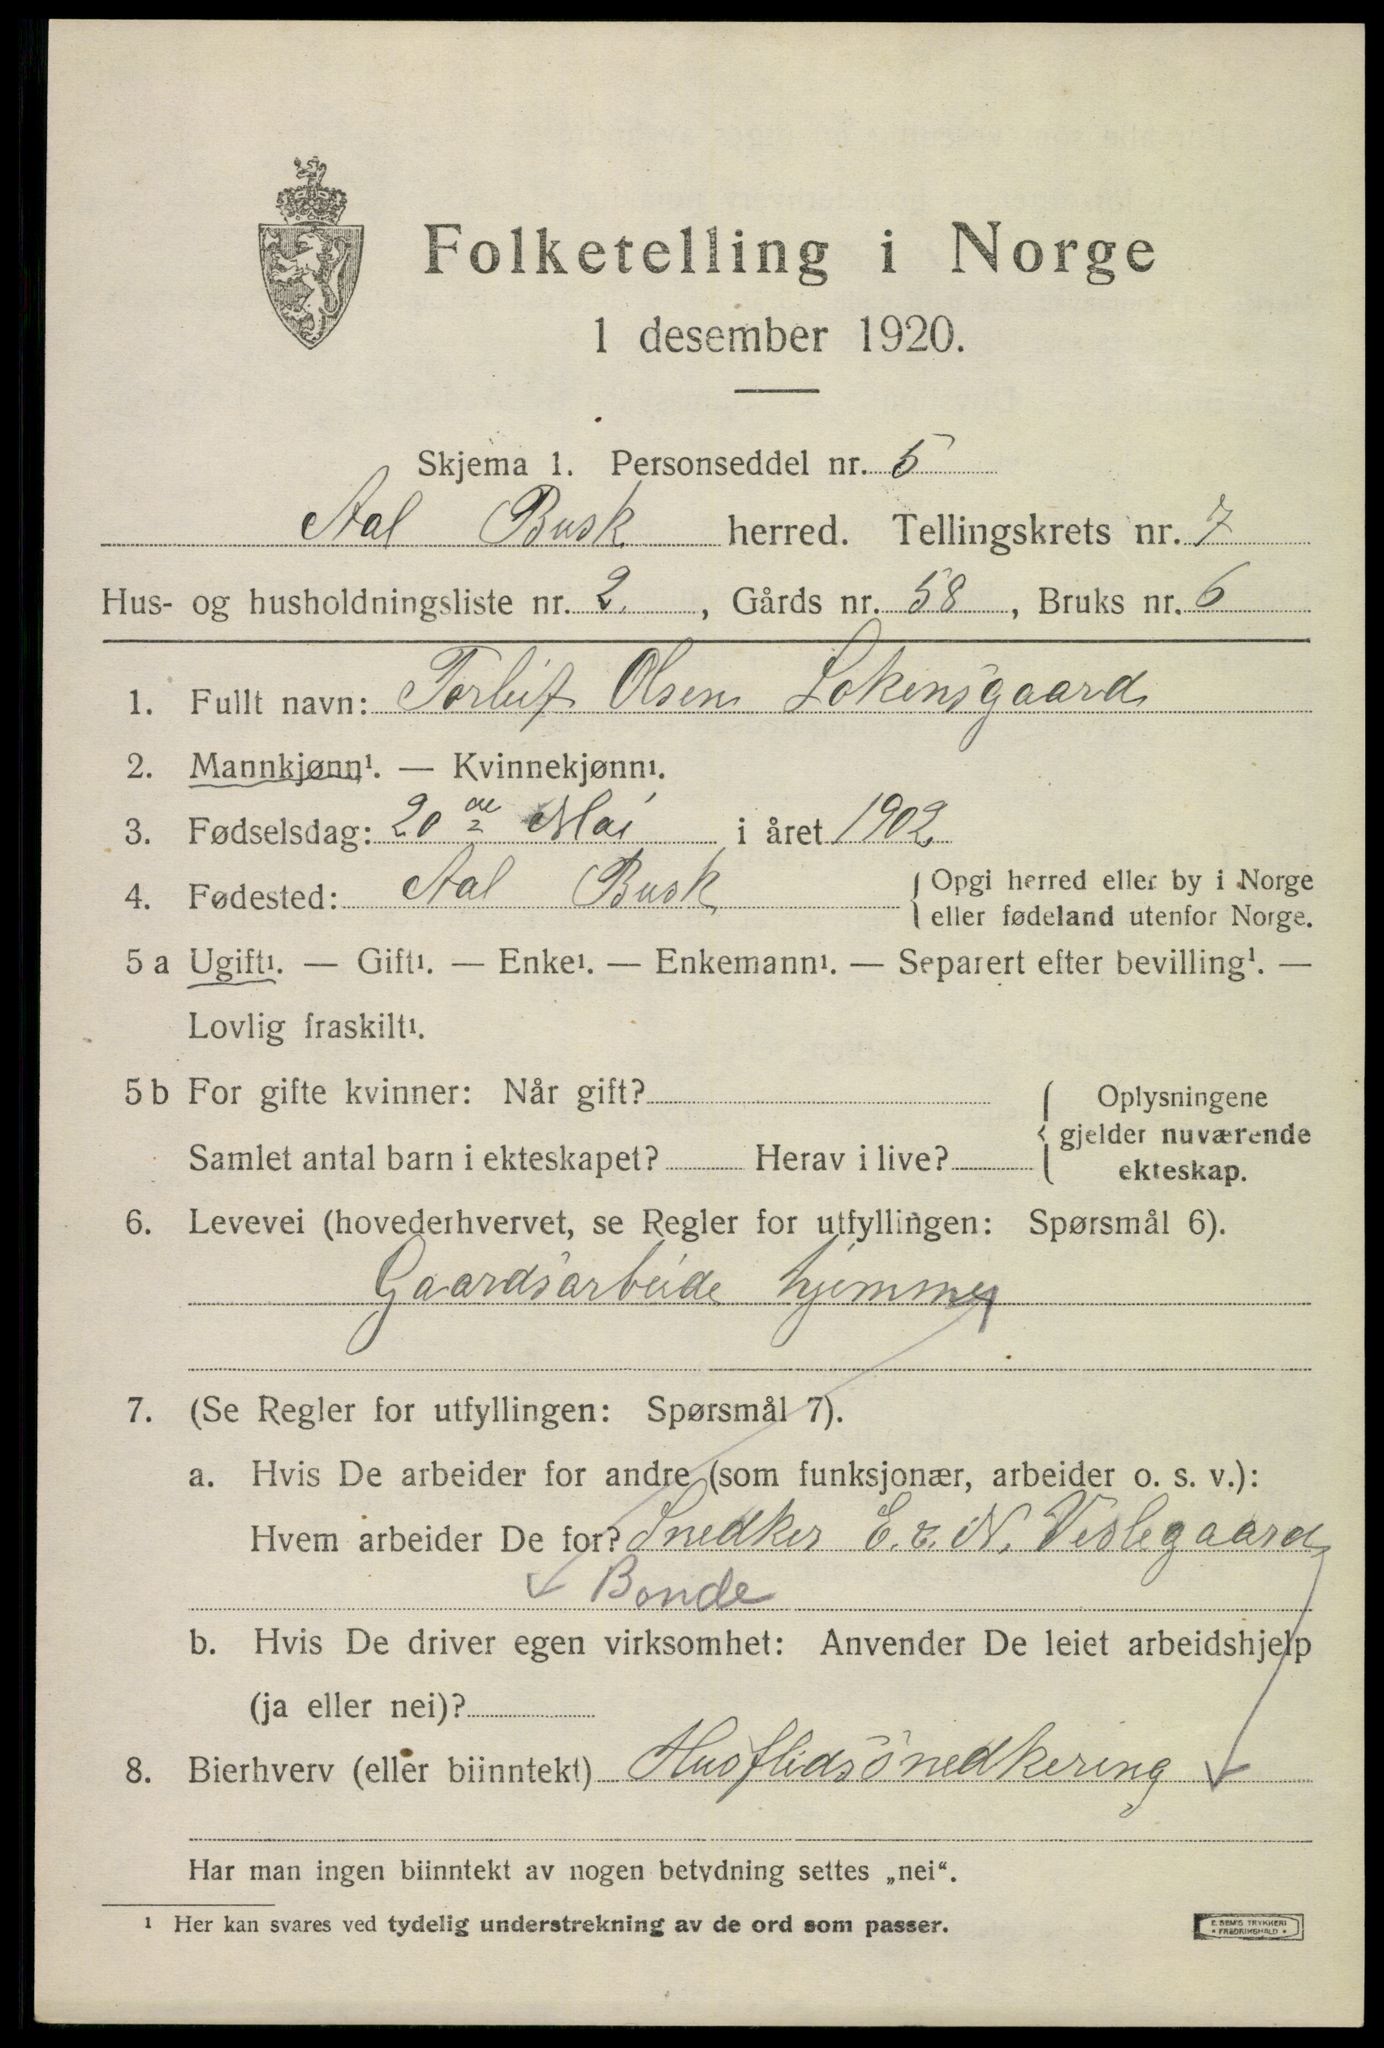 Folketelling i Norge
1 desember 1920.
Skjema 1. Personseddel nr. 5
Aal Busk herred. Tellingskrets nr. 7
Hus- og husholdningsliste nr. 2. , Gårds nr. 58 , Bruks nr. 6
1. Fullt navn: Torleif Olsen Lokensgaard
2. Mannkjønn¹. — Kvinnekjønn¹.
3. Fødselsdag: 20 de Mai i året 1902
4. Fødested: Aal Busk { Opgi herred eller by i Norge
eller fødeland utenfor Norge.
5 a Ugift¹. — Gift¹. — Enke¹. — Enkemann¹. — Separert efter bevilling¹. —
Lovlig fraskilt¹.
5 b For gifte kvinner: Når gift? { Oplysningene
gjelder nuværende
Samlet antal barn i ekteskapet? Herav i live? ekteskap.
6. Levevei (hovederhvervet, se Regler for utfyllingen: Spørsmål 6).
Gaardsarbeide hjemme
7. (Se Regler for utfyllingen: Spørsmål 7).
a. Hvis De arbeider for andre (som funksjonær, arbeider o. s. v.):
Hvem arbeider De for? Snedker E. N. Veslegaard
Bonde
b. Hvis De driver egen virksomhet: Anvender De leiet arbeidshjelp
(ja eller nei)?
8. Bierhverv (eller biinntekt) Husflidsnedkering
Har man ingen biinntekt av nogen betydning settes „nei“.
¹ Her kan svares ved tydelig understrekning av de ord som passer.
E. SEM'S TRYKKERI
* FREDRIKSHALD *